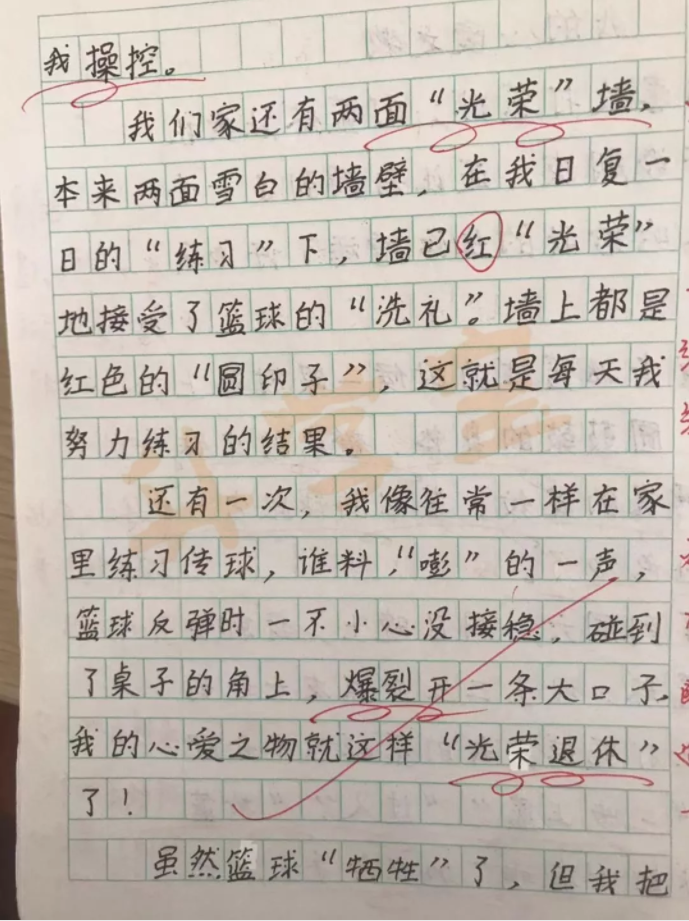 我操控。
我们家还有两面“光荣”墙，
本来两面雪白的墙壁，在我日复一
日的“练习”下，墙已红“光荣”
地接受了篮球的“洗礼”。墙上都是
红色的“圆印子”，这就是每天我
努力练习的结果。
还有一次，我像往常一样在家
里练习传球，谁料，“嘭”的一声，
篮球反弹时一不小心没接稳，碰到
了桌子的角上，爆裂开一条大口子，
我的心爱之物就这样“光荣退休”
了！
虽然篮球“牺牲”了，但我把